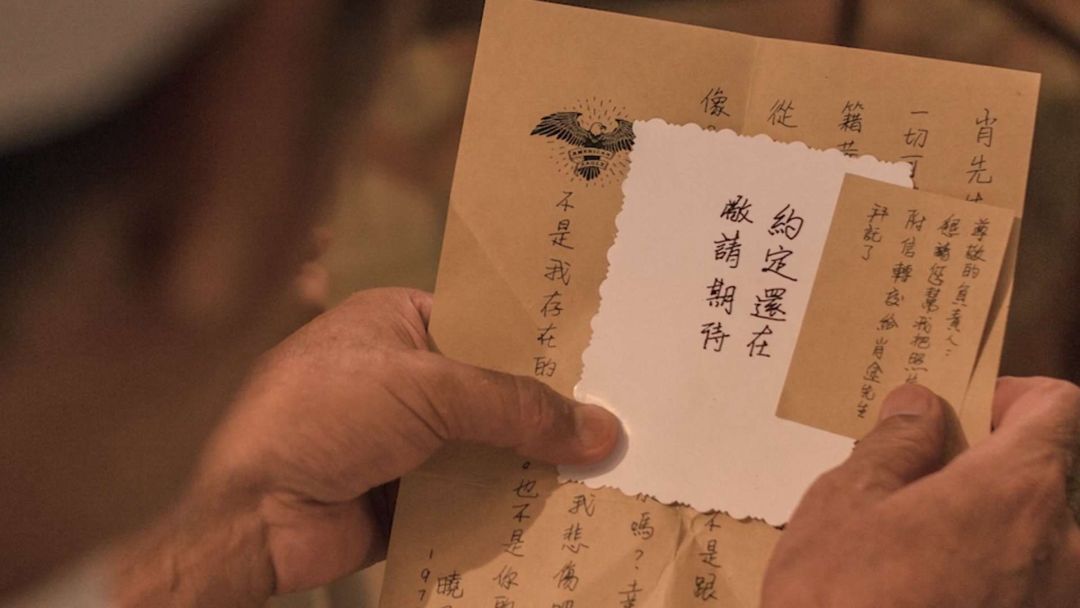 肖先生
一切
籍
從
像
不是跟
嗎？幸
我悲傷
不是我存在的
。也不是你的
曉
197
AMERICAN
EAGLE
約定還在
敬請期待
尊敬的負責人：
懇請您幫我把照
附信轉交給肖塗先生
拜託了